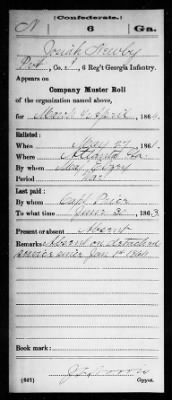 (Confederate.)
N 6 Ga.
Josiah Newby
Pvt, Co. , 6 Reg't Georgia Infantry.
Appears on
Company Muster Roll
of the organization named above,
for March & April, 1864.
Enlisted:
When May 27, 1861.
Where Atlanta Ga.
By whom Maj.
Period War
Last paid:
By whom Capt.
To what time June 30, 1863.
Present or absent Absent
Remarks: Absent on detached
service since Jan 1st 1864
Book mark:
(642) Copyist.